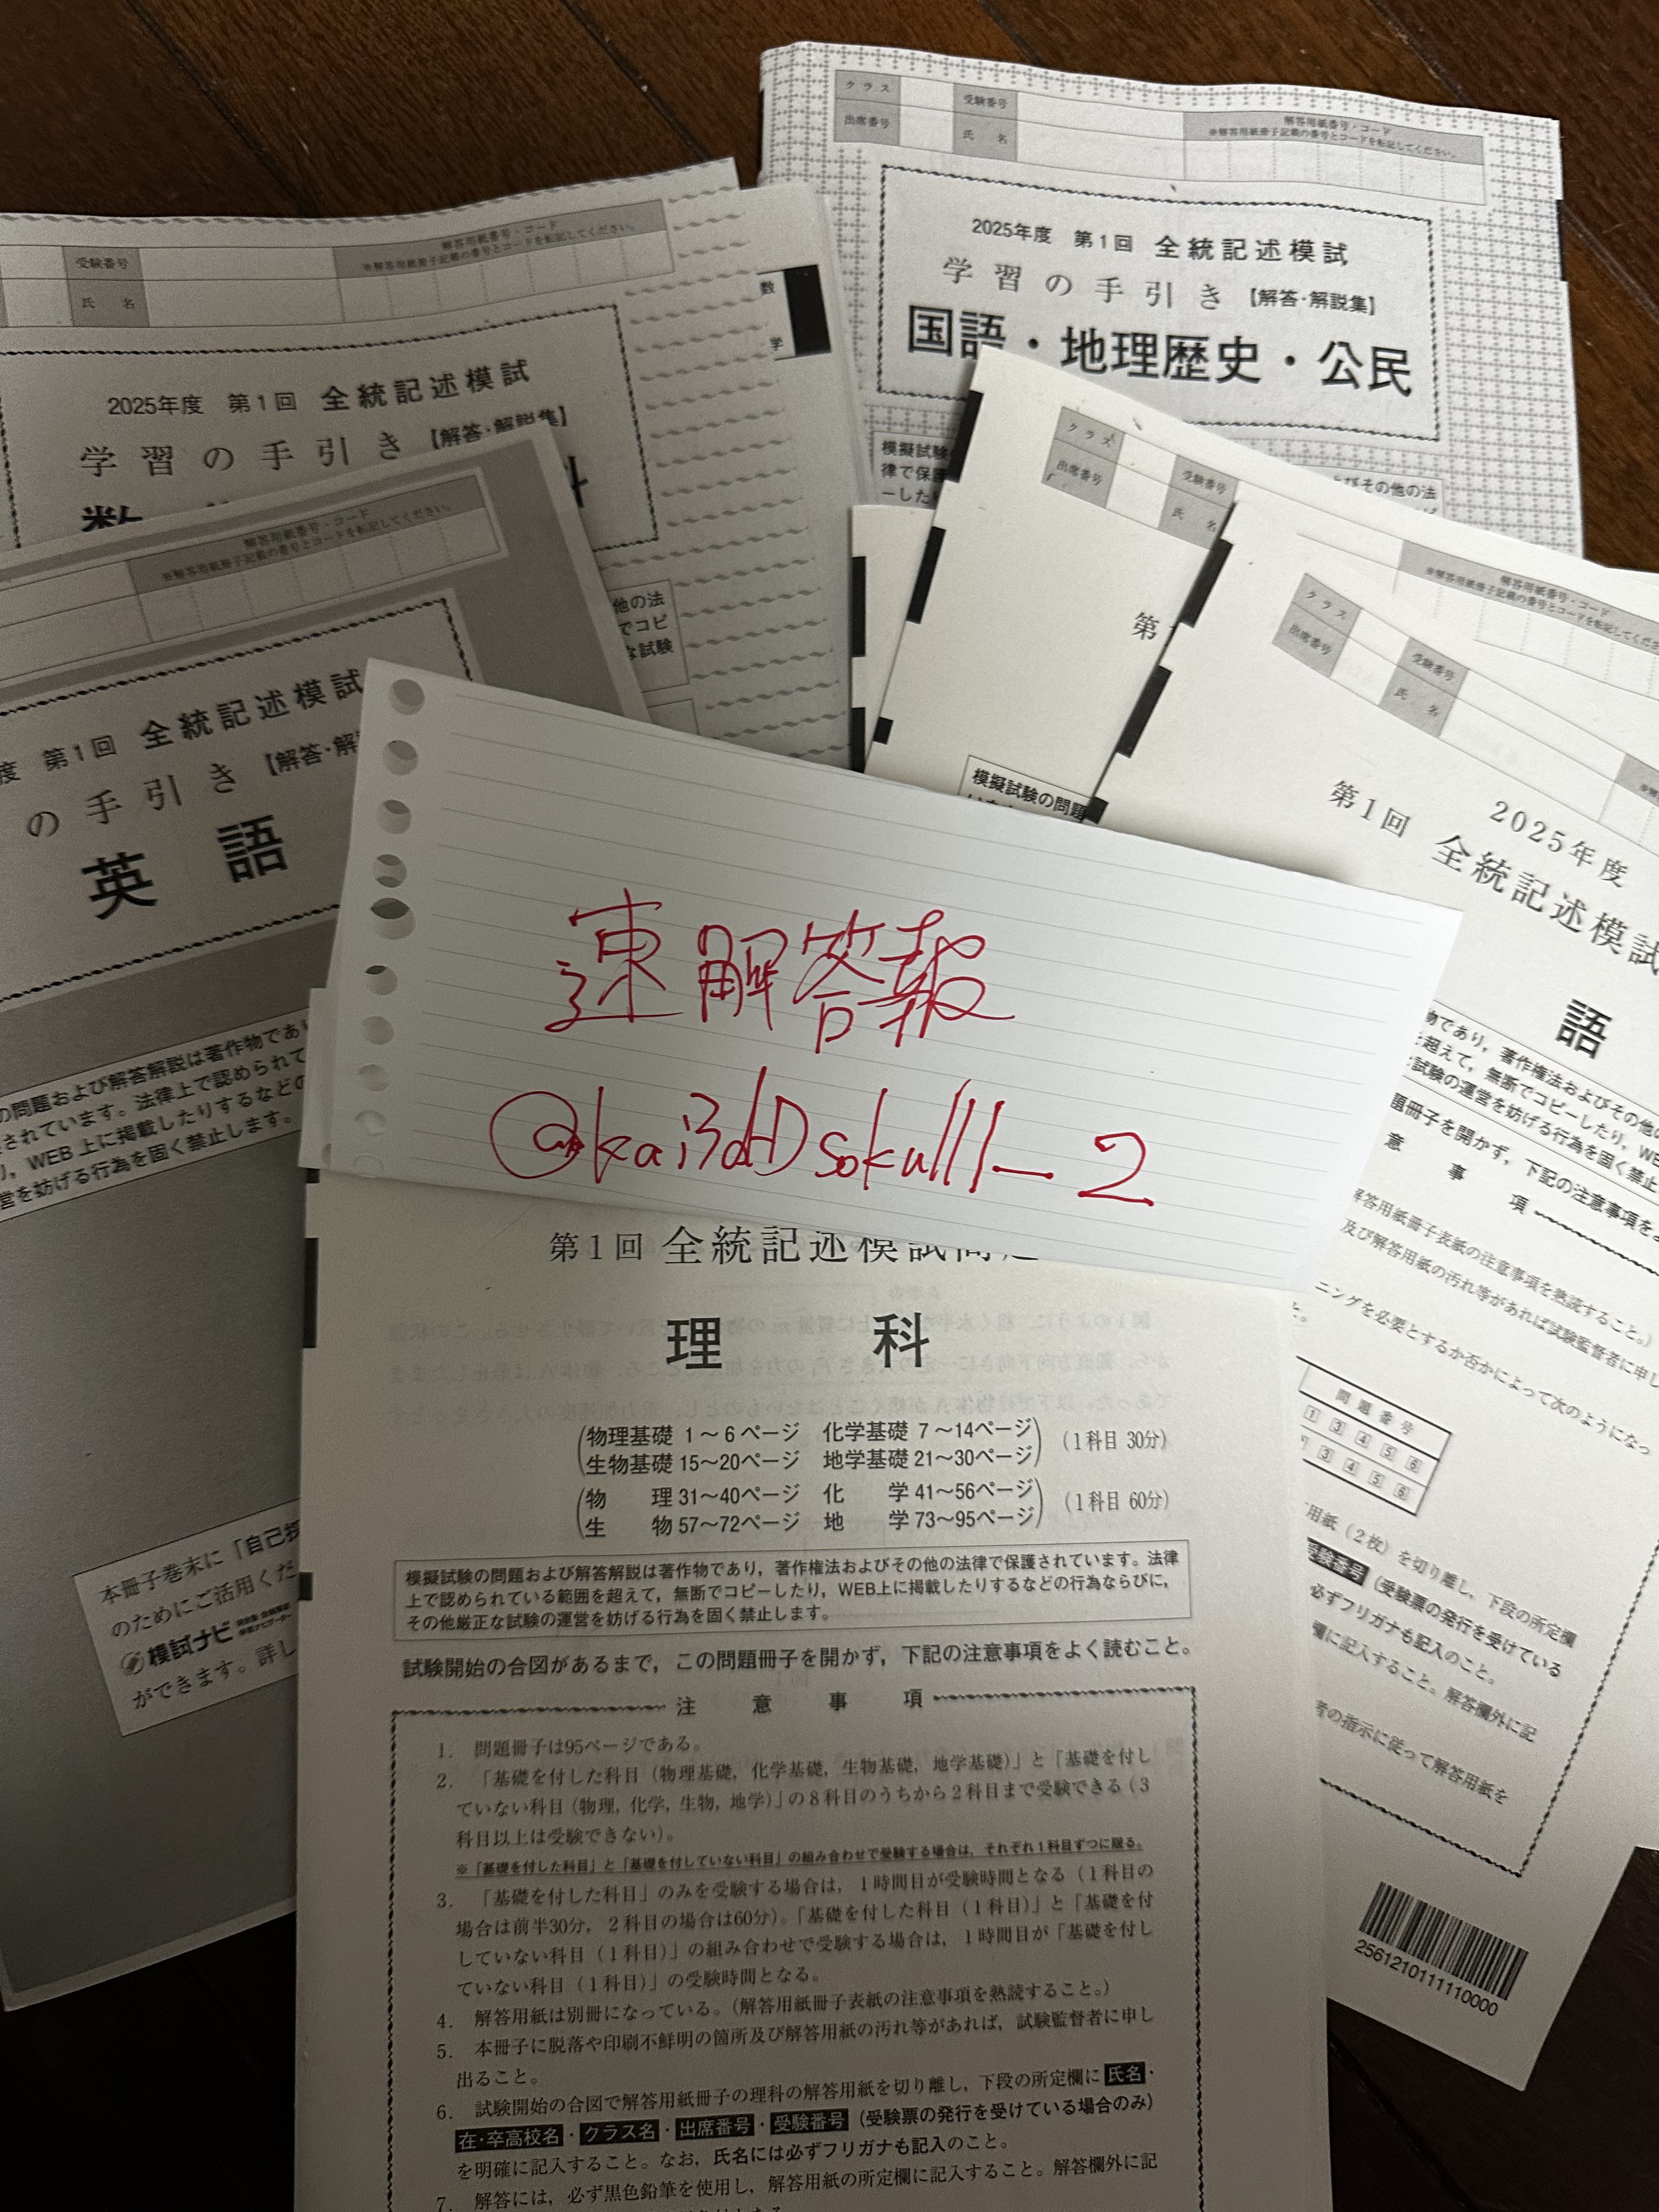 クラス
受験番号
解答用紙番号・コード
※解答用紙冊子記載の番号とコードを転記してください。
出席番号
氏 名
2025年度 第1回 全統記述模試
学習の手引き【解答・解説集】
国語・地理歴史・公民
模擬試験
律で保
ーした
よびその他の法
受験番号
解答用紙番号・コード
※解答用紙冊子記載の番号とコードを転記してください。
氏 名
数
学
2025年度 第1回 全統記述模試
学習の手引き【解答・解説集】
他の法
でコピ
な試験
解答用紙番号・コード
※解答用紙冊子記載の番号とコードを転記してください。
度 第1回 全統記述模試
の手引き【解答・解
英語
の問題および解答解説は著作物であり
されています。法律上で認められて
り，WEB上に掲載したりするなどの
営を妨げる行為を固く禁止します。
本冊子巻末に「自己採
のためにご活用くだ
模試ナビ
ができます。詳し
クラス
出席番号
受験番号
氏 名
第
模擬試験の問題
解答用紙番号・コード
※解答用紙冊子記載の番号とコードを転記してくださ
クラス
出席番号
受験番号
氏 名
2025年度
第1回 全統記述模試
語
物であり，著作権法およびその他の
超えて，無断でコピーしたり，WE
試験の運営を妨げる行為を固く禁止
題冊子を開かず，下記の注意事項を
意 事 項
解答用紙冊子表紙の注意事項を熟読すること。）
及び解答用紙の汚れ等があれば試験監督者に申し
ニングを必要とするか否かによって次のようになっ
と。
問題番号
1 3 4 5 6
3 4 5 6
用紙（2枚）を切り離し，下段の所定欄
受験番号（受験票の発行を受けている
必ずフリガナも記入のこと。
欄に記入すること。解答欄外に記
者の指示に従って解答用紙を
2561210111110000
速解答報
@kai3dDsokulll_2
第1回 全統記述模試問題
理科
物理基礎 1～6ページ 化学基礎 7～14ページ （1科目 30分）
生物基礎 15～20ページ 地学基礎 21～30ページ
物 理 31～40ページ 化 学 41～56ページ （1科目 60分）
生 物 57～72ページ 地 学 73～95ページ
模擬試験の問題および解答解説は著作物であり，著作権法およびその他の法律で保護されています。法律
上で認められている範囲を超えて，無断でコピーしたり，WEB上に掲載したりするなどの行為ならびに，
その他厳正な試験の運営を妨げる行為を固く禁止します。
試験開始の合図があるまで，この問題冊子を開かず，下記の注意事項をよく読むこと。
注意事項
1. 問題冊子は95ページである。
2. 「基礎を付した科目（物理基礎，化学基礎，生物基礎，地学基礎）」と「基礎を付し
ていない科目（物理，化学，生物，地学）」の8科目のうちから2科目まで受験できる（3
科目以上は受験できない）。
※「基礎を付した科目」と「基礎を付していない科目」の組み合わせで受験する場合は，それぞれ1科目ずつに限る。
3. 「基礎を付した科目」のみを受験する場合は，1時間目が受験時間となる（1科目の
場合は前半30分，2科目の場合は60分）。「基礎を付した科目（1科目）」と「基礎を付
していない科目（1科目）」の組み合わせで受験する場合は，1時間目が「基礎を付し
ていない科目（1科目）」の受験時間となる。
4. 解答用紙は別冊になっている。（解答用紙冊子表紙の注意事項を熟読すること。）
5. 本冊子に脱落や印刷不鮮明の箇所及び解答用紙の汚れ等があれば，試験監督者に申し
出ること。
6. 試験開始の合図で解答用紙冊子の理科の解答用紙を切り離し，下段の所定欄に 氏名・
在・卒高校名・クラス名・出席番号・受験番号（受験票の発行を受けている場合のみ）
を明確に記入すること。なお，氏名には必ずフリガナも記入のこと。
7. 解答には，必ず黒色鉛筆を使用し，解答用紙の所定欄に記入すること。解答欄外に記